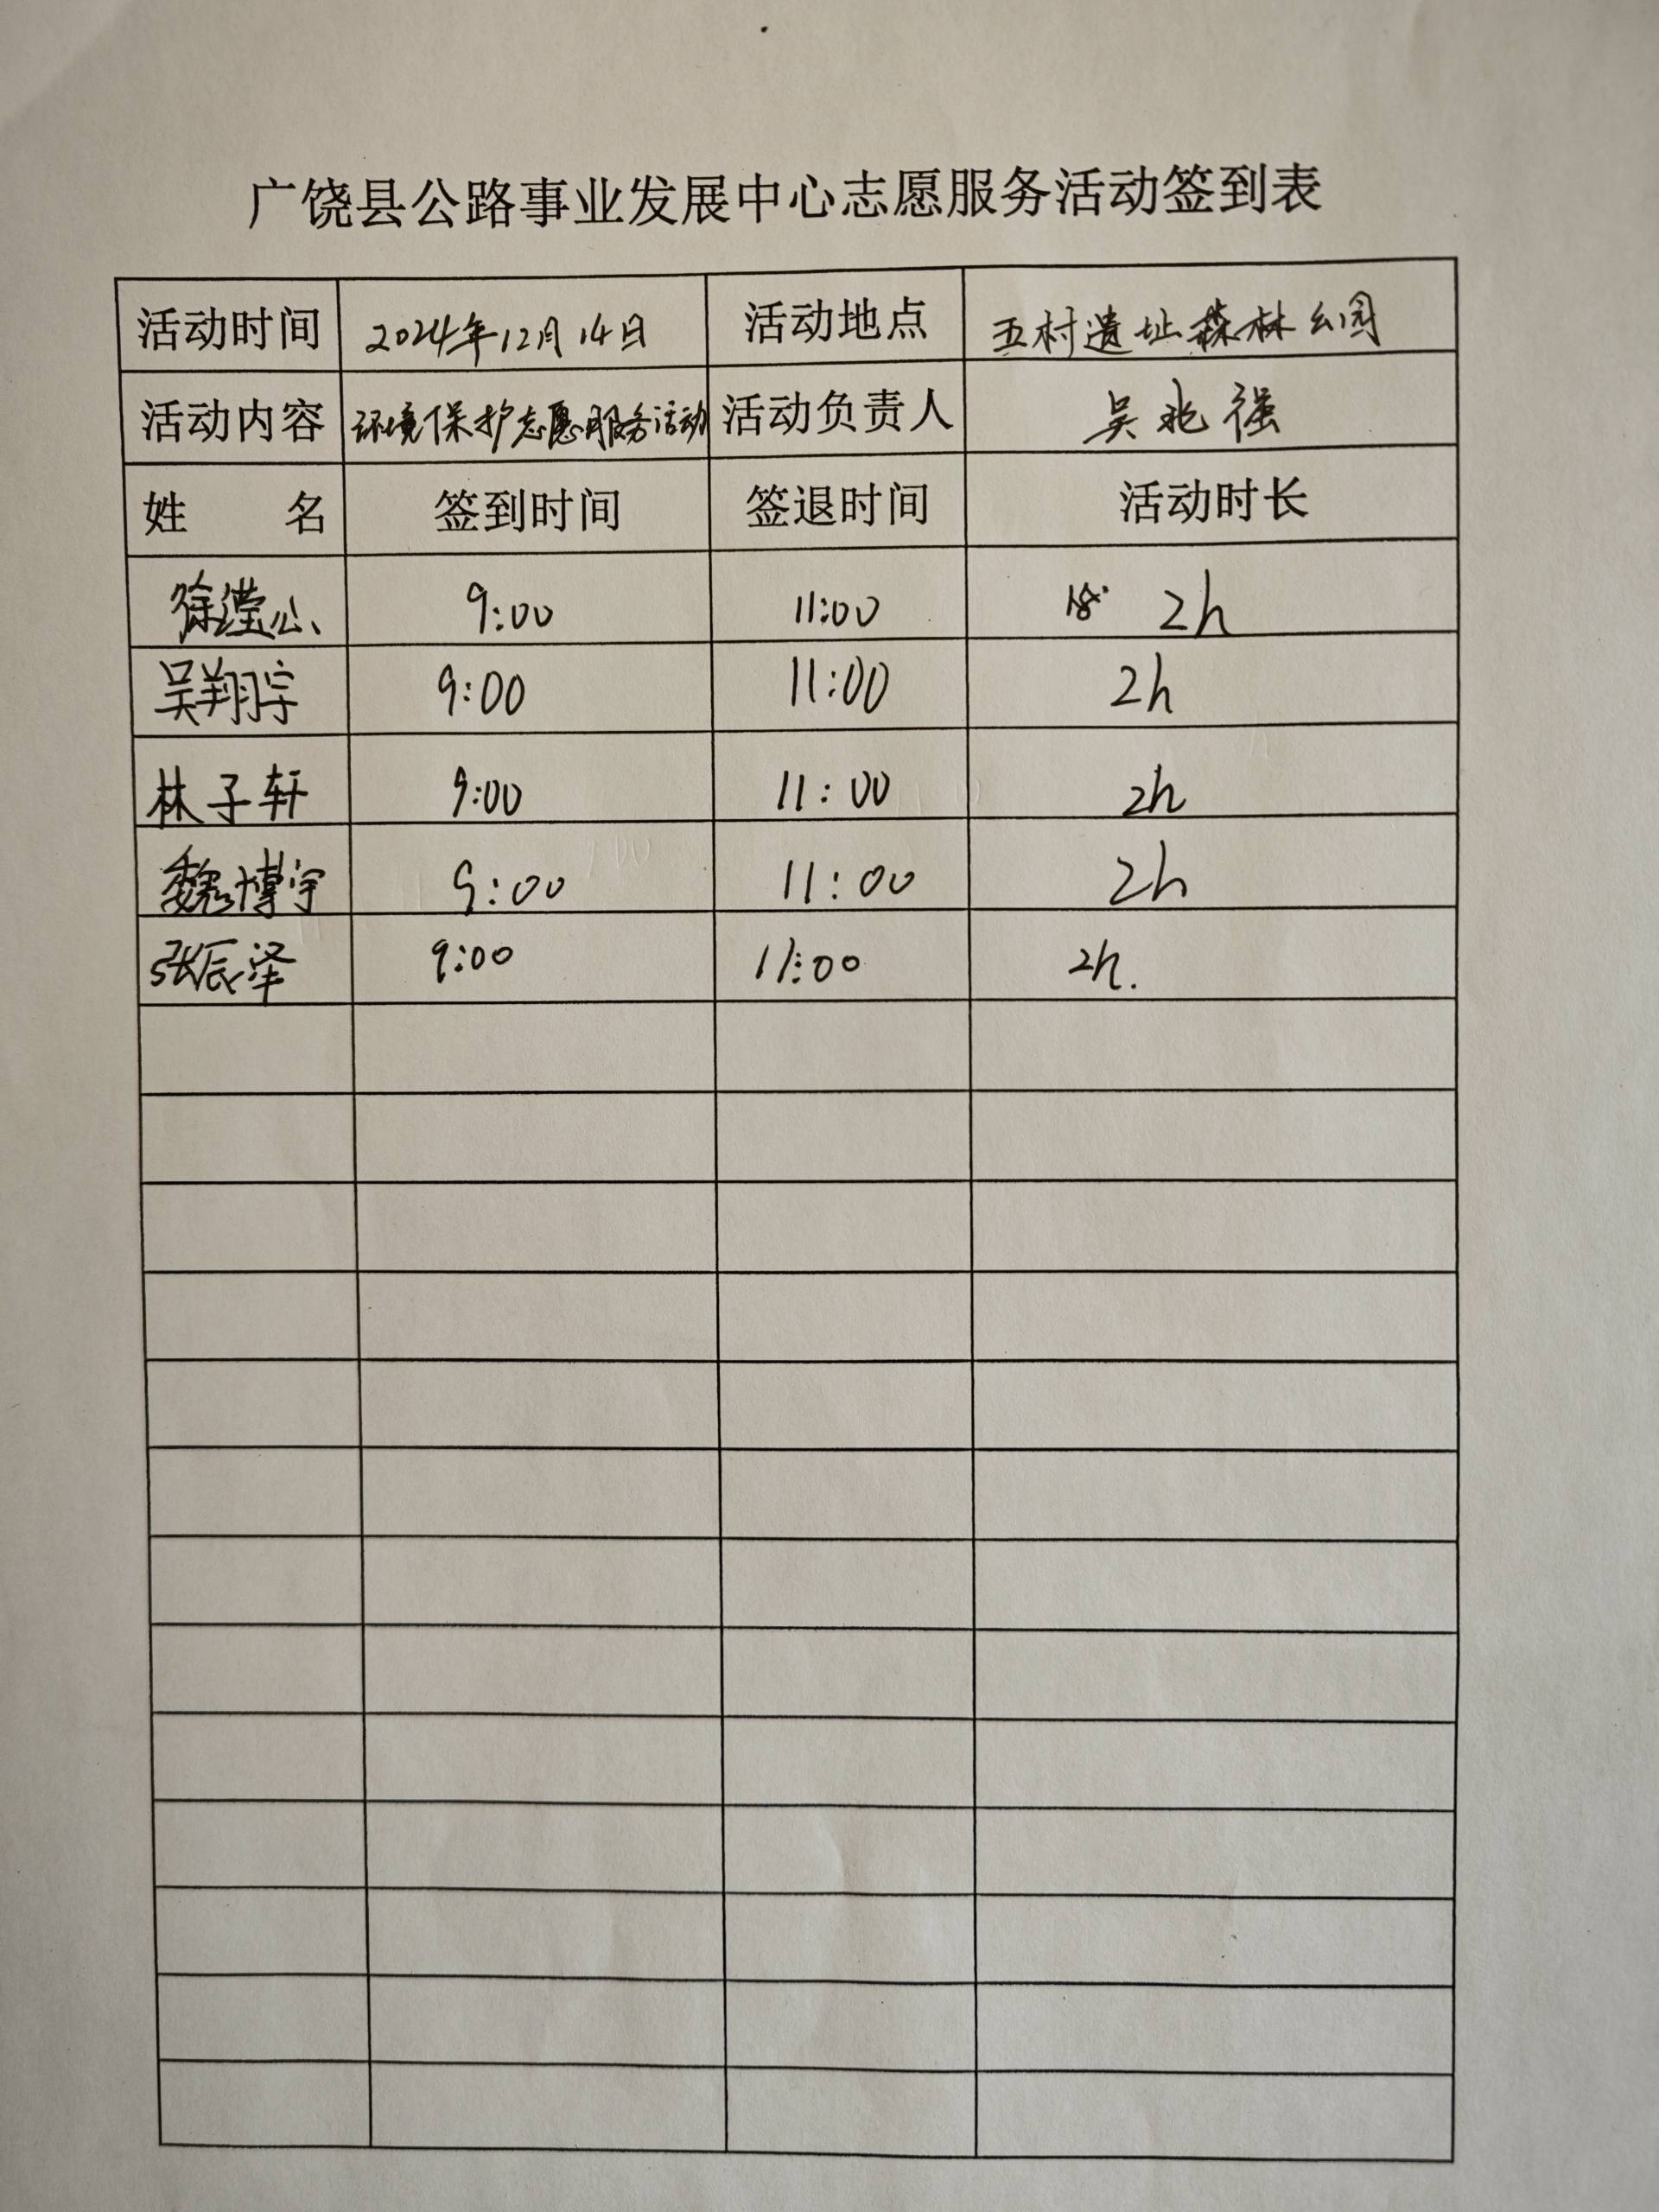 广饶县公路事业发展中心志愿服务活动签到表
活动时间 2024年12月14日 活动地点 五村遗址森林公园
活动内容 环境保护志愿服务活动 活动负责人 吴兆强
姓 名 签到时间 签退时间 活动时长
徐滢 9:00 11:00 2h
吴翔宇 9:00 11:00 2h
林子轩 9:00 11:00 2h
魏博宇 9:00 11:00 2h
张辰泽 9:00 11:00 2h.